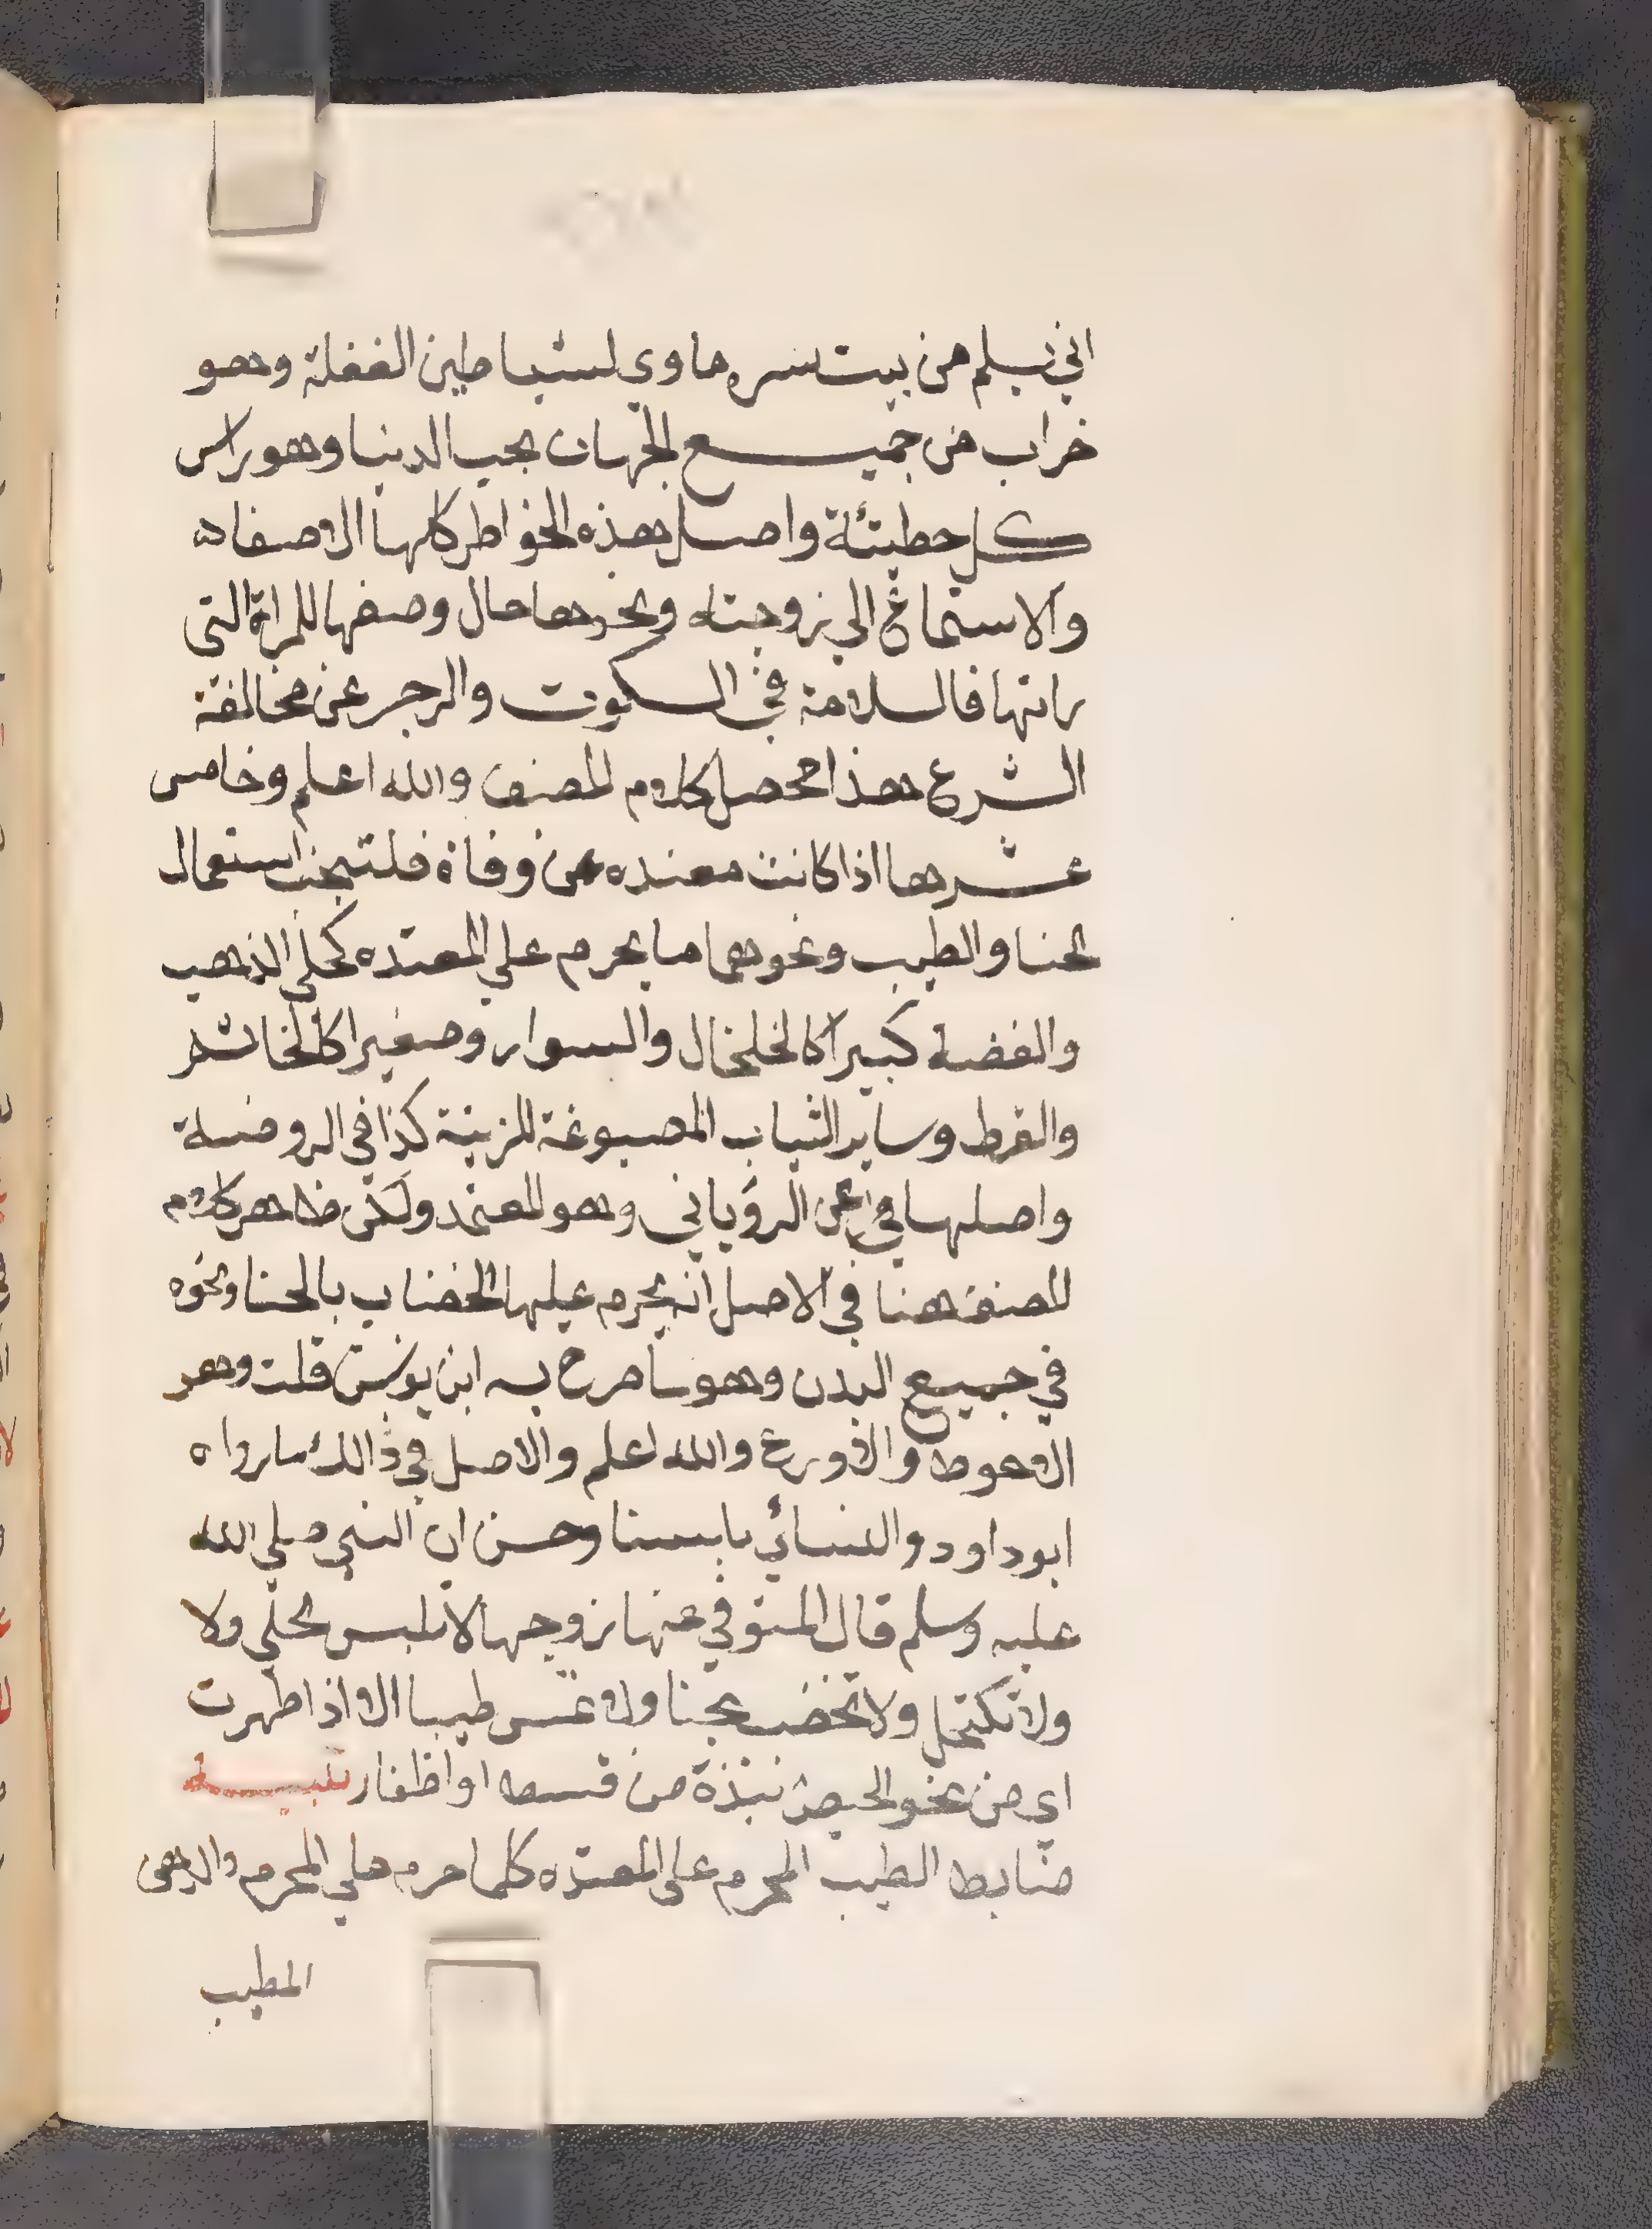 اني يسلم من بيت سره ماوي لشياطين الغفلة وهو
خراب من جميع الجهات بحب الدنيا وهو راس
كل خطيئة واصل هذه الخواطر كلها الاصفاه
والاستماع الي زوجته ونحوها حال وصفها للمراة التي
راتها فالسلامة في السكوت والزجر عن مخالفة
الشرع هذا محصل كلام المصنف والله اعلم وخامس
عشرها اذا كانت معتده من وفاة فلتجتنب استعمال
الحنا والطيب ونحوهما ما يحرم علي المعتده كحلي الذهب
والفضة كبيرا كالخلخال والسوار وصغيرا كالخاتم
والقرط وساير الثياب المصبوغة للزينة كذا في الروضة
واصلها في عن الروياني وهو المعتمد ولكن ظاهر كلام
المصنف هنا في الاصل انه يحرم عليها الخضاب بالحنا ونحوه
في جميع البدن وهو ما صرح به ابن يونس قلت وهو
الاحوط والاورع والله اعلم والاصل في ذالك ما رواه
ابو داود والنسائي باسنا وحسن ان النبي صلي الله
عليه وسلم قال المتوفي عنها زوجها لا تلبس الحلي ولا
ولا تكتحل ولا تخضب بحنا ولا تمس طيبا الا اذا طهرت
اي من نحو الحيض نبذة من قسط او اظفار تنبيه
ضابط الطيب المحرم علي المعتده كلما حرم علي المحرم والدهن
المطيب